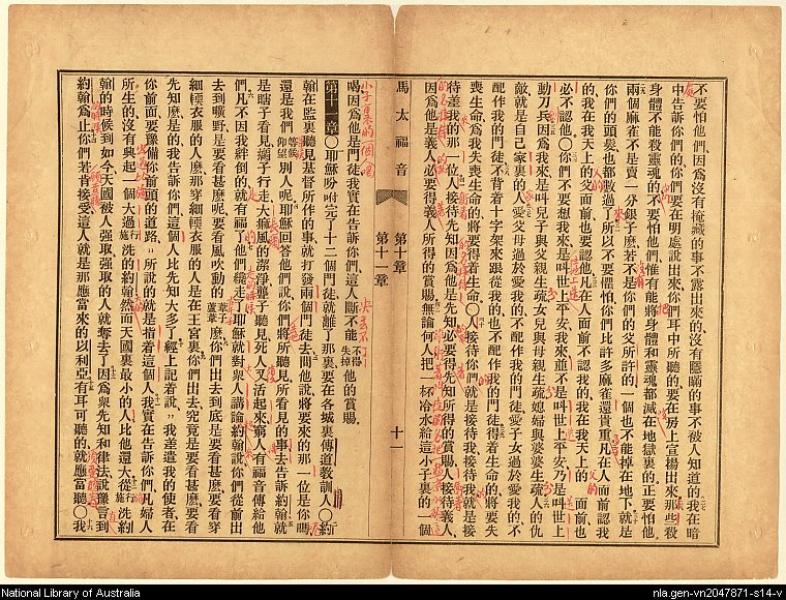 不要怕他們、因爲沒有掩藏的事不露出來的、沒有隱瞞的事不被人知道的、我在暗
中告訴你們的、你們要在明處說出來、你們耳中所聽的、要在房上宣揚出來、那些殺
身體不能殺靈魂的、不要怕他們、惟有能將身體和靈魂都滅在地獄裏的、正要怕他
兩個麻雀不是賣一分銀子麽、若不是你們的父所許的、一個也不能掉在地下、就是
你們的頭髮也都數過了、所以不要懼怕、你們比許多麻雀還貴重、凡在人面前認我
的、我在我天上的父面前也要認他、凡在人面前不認我的、我在我天上的 面前也
必不認他〇你們不要想我來是叫世上平安、我來並不是叫世上平安、乃是叫世上
動刀兵、因爲我來是叫兒子與父親生疏、女兒與母親生疏、媳婦與婆婆生疏、人的仇
敵就是自己家裏的人、愛父母過於愛我的、不配作我的門徒、愛子女過於愛我的、不
配作我的門徒、不背着十字架來跟從我的、也不配作我的門徒、得着生命的、將要失
喪生命、爲我失喪生命的、將要得着生命〇人接待你們、就是接待我、接待我就是接
待差我的那一位、人接待先知、因爲他是先知、必要得先知所得的賞賜、人接待義人、
因爲他是義人、必要得義人所得的賞賜、無論何人、把一杯冷水給這小子裏的一個
馬太福音 第十章 第十一章 十一
喝、因爲他是門徒、我實在告訴你們、這人斷不能不得失掉他的賞賜、
小子裏的一個喝
第十一章〇耶穌吩咐完了十二個門徒、就離了那裏、要在各城裏傳道教訓人〇約
翰在監裏聽見基督所作的事、就打發兩個門徒去問他說、將要來的那一位是你嗎、
還是我們等候仰望別人呢、耶穌回答他們說、你們將所聽見、所看見的事、去告訴約翰、就
是瞎子看見、瘸子行走、大痲風的潔淨、聾子聽見、死人又活起來、窮人有福音傳給他
們、凡不因我絆倒的就有福了、他們纔走了、耶穌就對眾人講論約翰說、你們從前出
去到曠野、是要看甚麽呢、要看風吹動的葦子蘆葦麽、你們出去到底是要看甚麽、要看穿
細輭衣服的人麽、那穿細輭衣服的人是在王宮裏、你們出去、究竟是要看甚麽、要看
先知麽、是的、我告訴你們、這個人比先知大多了、經上記着說、我差遣我的使者、在
你前面、要豫備你前頭的道路、所說的就是指着這個人、我實在告訴你們、凡婦人
所生的、沒有興起一個大過施行洗的約翰、然而天國裏最小的人比他還大、從施行洗約
翰的時候到如今、天國被人强取、强取的人就奪去了、因爲眾先知和律法說豫言到
約翰爲止、你們若肯接受、這人就是那應當來的以利亞、有耳可聽的就應當聽〇我
National Library of Australia
nla.gen-vn2047871-s14-v